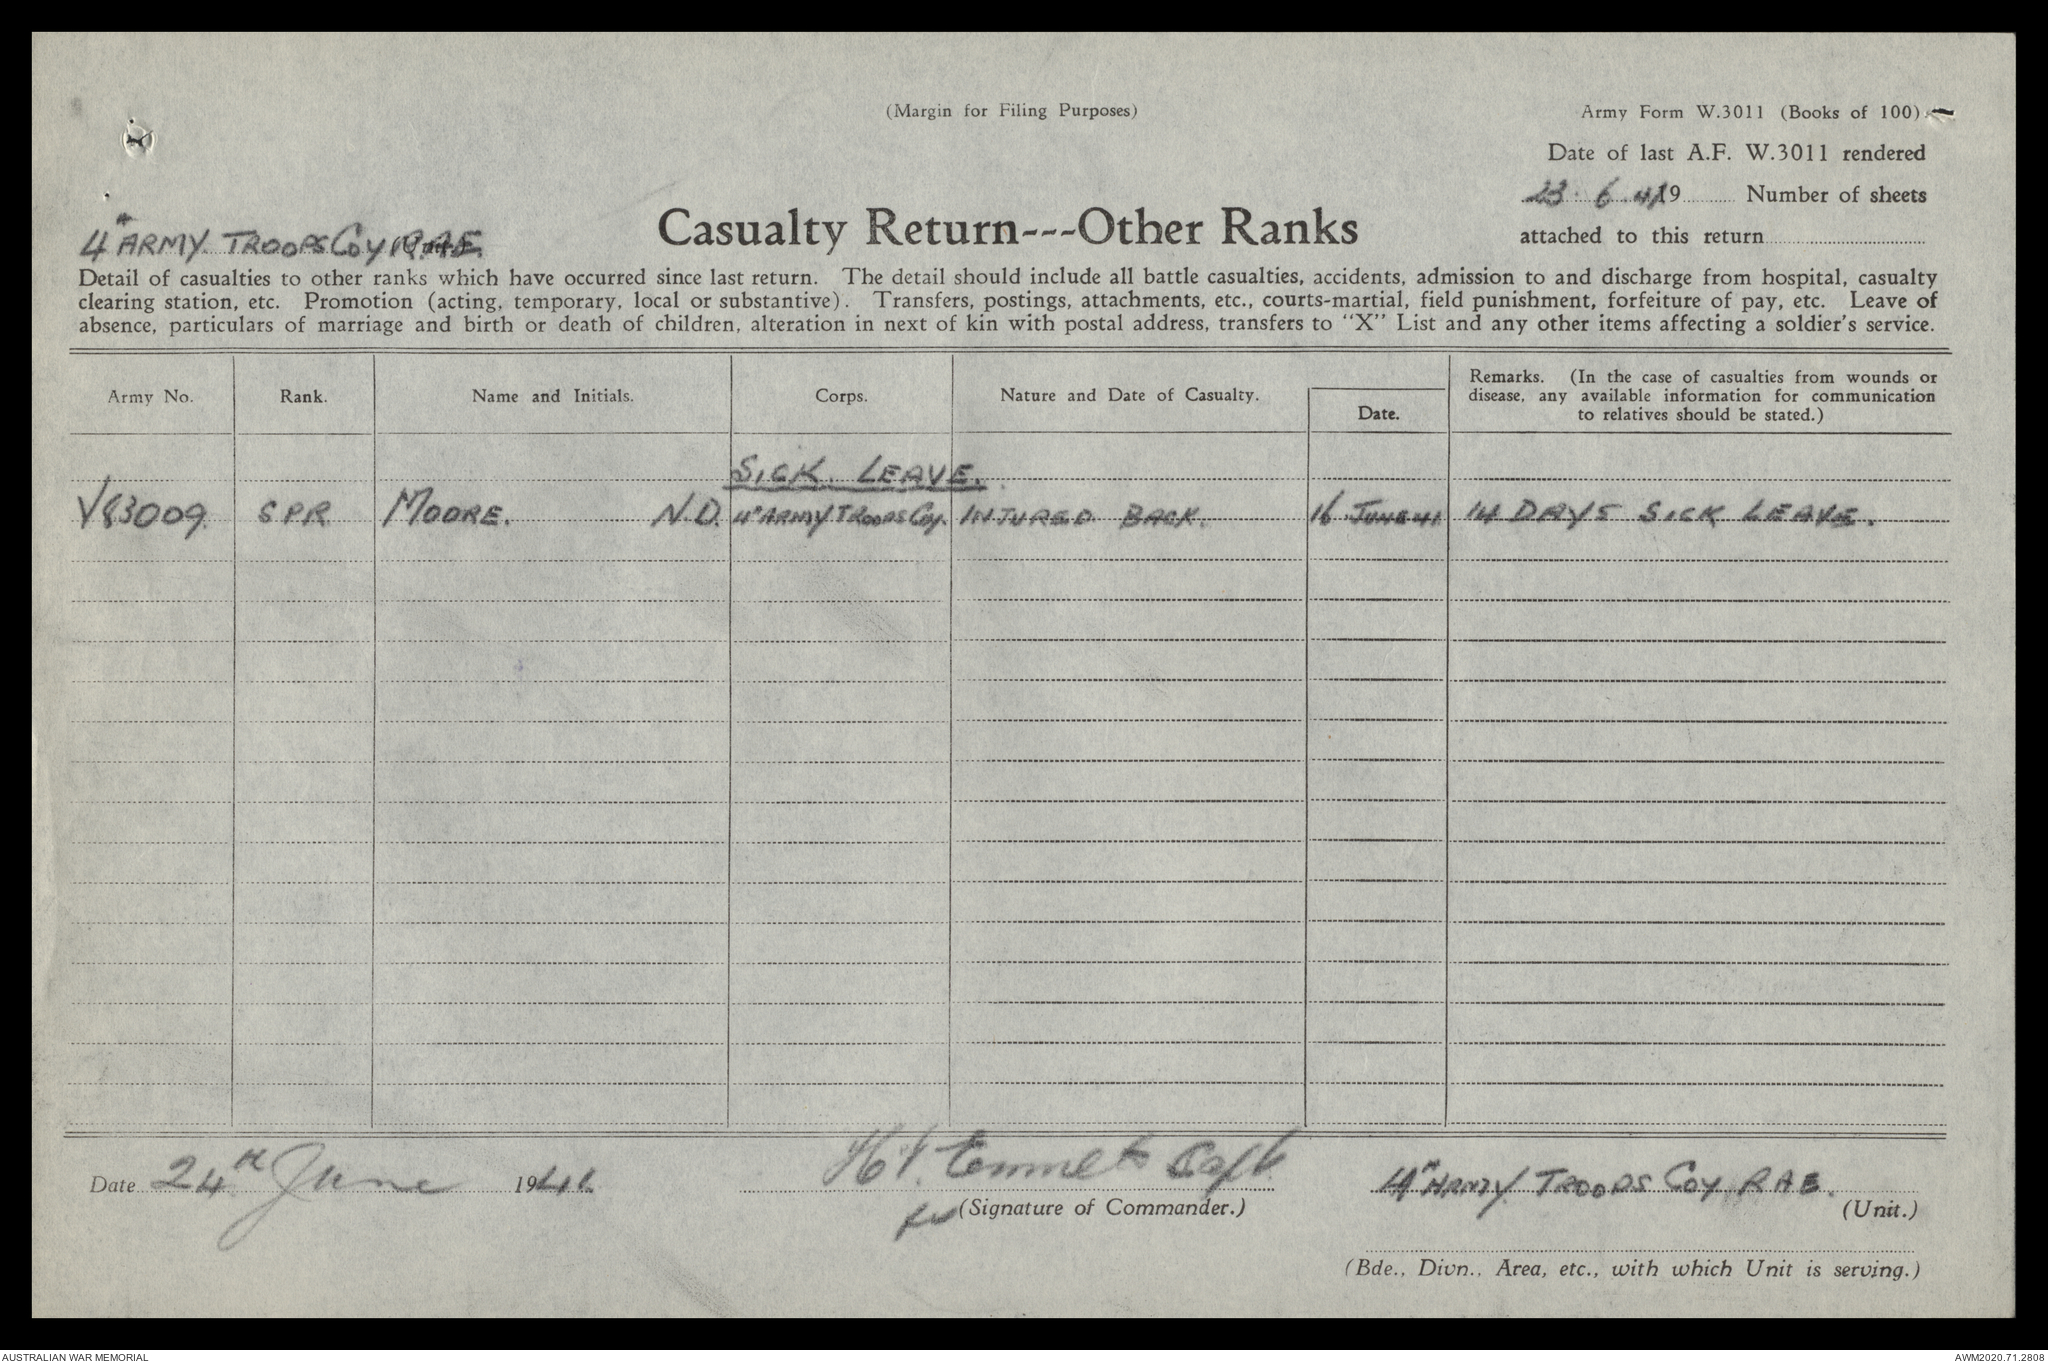 (Margin for Filing Purposes)
Army Form W.3011 (Books of 100)
Date of last A.F. W.3011 rendered
23. 6. 41 19 Number of sheets
attached to this return
4th ARMY TROOPS COY R.A.E.
Casualty Return---Other Ranks
Detail of casualties to other ranks which have occurred since last return. The detail should include all battle casualties, accidents, admission to and discharge from hospital, casualty
clearing station, etc. Promotion (acting, temporary, local or substantive). Transfers, postings, attachments, etc., courts-martial, field punishment, forfeiture of pay, etc. Leave of
absence, particulars of marriage and birth or death of children, alteration in next of kin with postal address, transfers to "X" List and any other items affecting a soldier's service.
Army No. Rank. Name and Initials. Corps. Nature and Date of Casualty. Date. Remarks. (In the case of casualties from wounds or
disease, any available information for communication
to relatives should be stated.)
SICK. LEAVE.
V83009 SPR MOORE. N.D. 4th ARMY TROOPS COY. INJURED BACK. 16 JUNE 41 14 DAYS SICK LEAVE.
Date 24th June 1941 Capt. 4th ARMY TROOPS COY RAE.
for (Signature of Commander.) (Unit.)
(Bde., Divn., Area, etc., with which Unit is serving.)
AUSTRALIAN WAR MEMORIAL AWM2020.71.2808